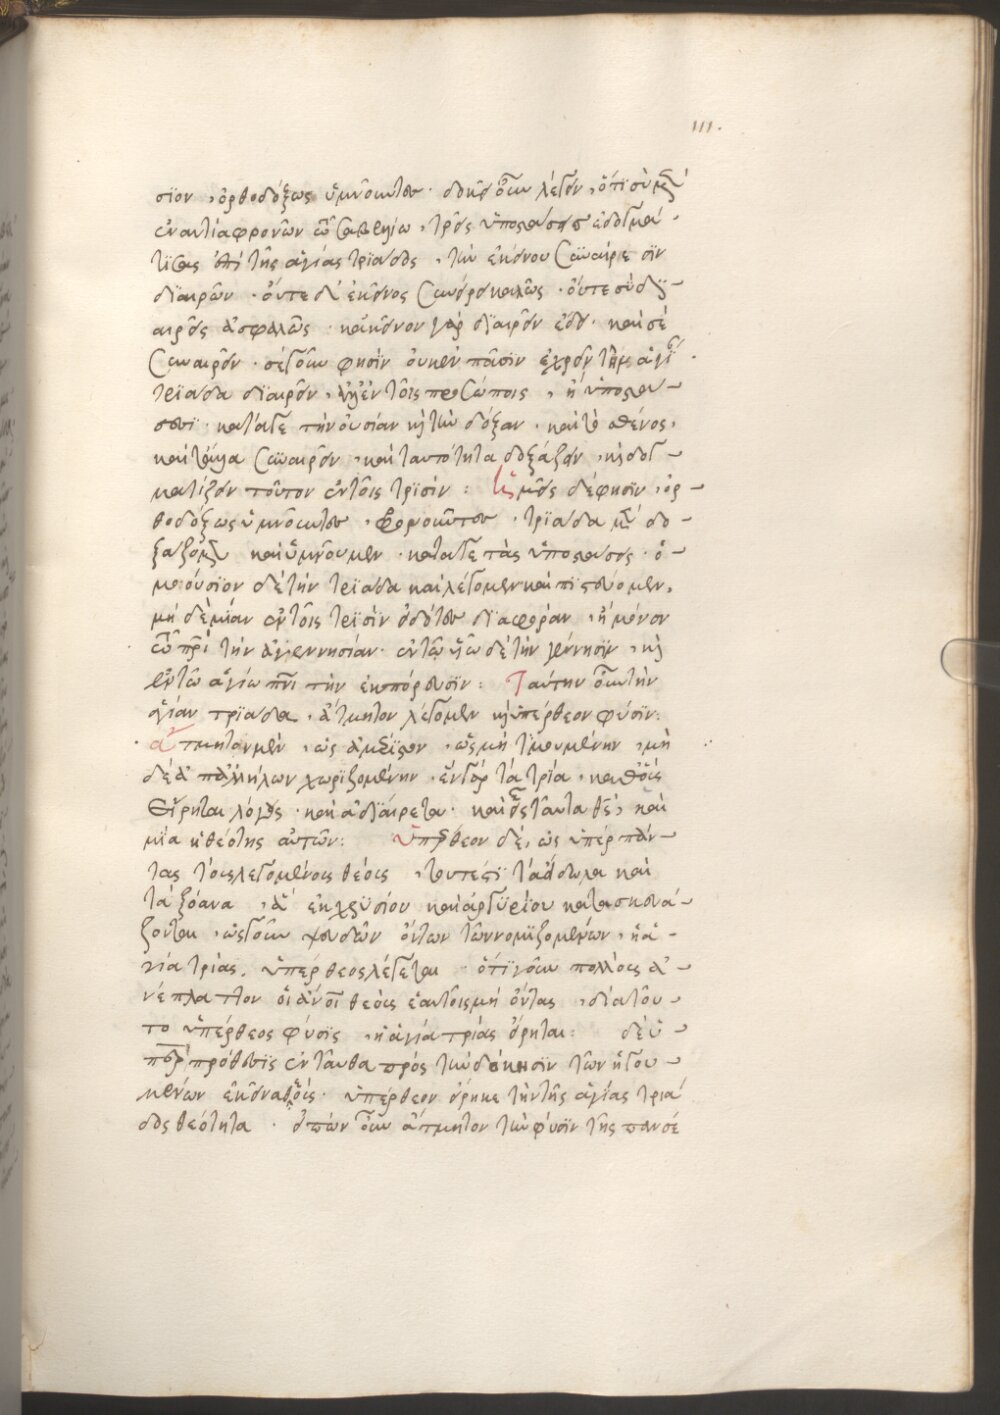 111.
σϊον, ὀρθοδόξως ὑμνοῦντες. δοκεῖς οὖν λέγειν, ὅτι σὺ μὲν
ἐναντία φρονῶν τῷ Σαβελλίῳ, τρεῖς ὑποστάσεις ἐδογμά-
τισας ἐπὶ τῆς ἁγίας τριάδος, τὴν ἐκείνου συναίρεσιν
διαιρῶν. οὔτε δὲ ἐκεῖνος καλῶς. οὔτε σὺ δϊ-
αιρεῖς ἀσφαλῶς. κἀκεῖνον γὰρ διαιρεῖν ἔδει. καὶ σὲ
συναιρεῖν. φησὶν οὐκ ἐν πᾶσιν ἐχρῆν τὴν ἁγίαν
τρϊάδα διαιρεῖν, ἀλλ' ἐν τοῖς προσώποις, ἢ ὑποστά-
σεσϊ. κατὰ δὲ τὴν οὐσίαν καὶ τὴν δόξαν. καὶ τὸ σθένος,
συναιρεῖν, καὶ ταυτότητα δοξάζειν, καὶ δογ-
ματίζειν τούτων ἐν τοῖς τρισίν: ἡμεῖς δέ φησϊν, ὀρ-
θοδόξως ὑμνοῦντες, φρονοῦντες. τρϊάδα μὲν δο-
ξάζομεν καὶ ὑμνοῦμεν. κατὰ τὰς ὑποστάσεις. ὁ-
μοούσϊον δὲ τὴν τρϊάδα καὶ λέγομεν καὶ πϊστεύομεν,
μηδεμίαν ἐν τοῖς τρϊσὶν εἰδότες διαφορὰν, ἢ μόνον
ἐν πρὶ τὴν ἀγεννησίαν. ἐν τῷ υἱῷ δὲ τὴν γέννησϊν, καὶ
ἐν τῷ ἁγίῳ πνὶ τὴν ἐκπόρευσϊν: Ταύτην οὖν τὴν
ἁγίαν τριάδα, ἄτμητον λέγομεν καὶ ὑπέρθεον φύσϊν:
ἄτμητον μὲν, ὡς ἀμέρϊστον, ὡς μὴ τεμνομένην, μη
δὲ ἀπ' ἀλλήλων χωρϊζομένην. ἓν γὰρ τὰ τρία, καθὼς
εἴρηται λόγος. καὶ ἀδϊαίρετα. καὶ εἷς ταῦτα θς, καὶ
μία ἡ θεότης αὐτῶν: ὑπέρθεον δὲ, ὡς ὑπὲρ πάν-
τας τοὺς λεγομένους θεοὺς, τουτέστϊ τὰ εἴδωλα καὶ
τὰ ξόανα, ἃ ἐκ χρϋσίου καὶ ἀργϋρίου κατασκευά-
ζονται, ὡς γοῦν ψευδῶν ὄντων τῶν νομϊζομένων, ἡ ἁ-
γία τριὰς, ὑπέρθεος λέγεται. ὅτι γοῦν πολλοὺς ἀ-
νέπλαττον οἱ ἄνοι θεοὺς ἑαυτοῖς μὴ ὄντας, διὰ τοῦ-
το ὑπέρθεος φύσϊς, ἡ ἁγία τριὰς εἴρηται: δὲ ὑ-
πὲρ πρόθεσϊς ἐνταῦθα πρὸς τὴν δόκησϊν τῶν ἡγου-
μένων ὑπέρθεον εἴρηκε τὴν τῆς ἁγίας τριά
δος θεότητα. εἰπὼν οὖν ἄτμητον τὴν φύσϊν τῆς πανσέ